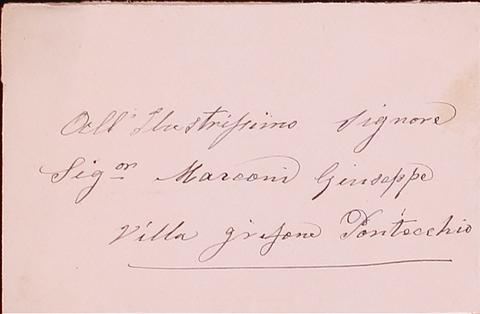 All' Ilustrissimo Signore
Sig.or Marconi Giuseppe
Villa grifone Pontecchio